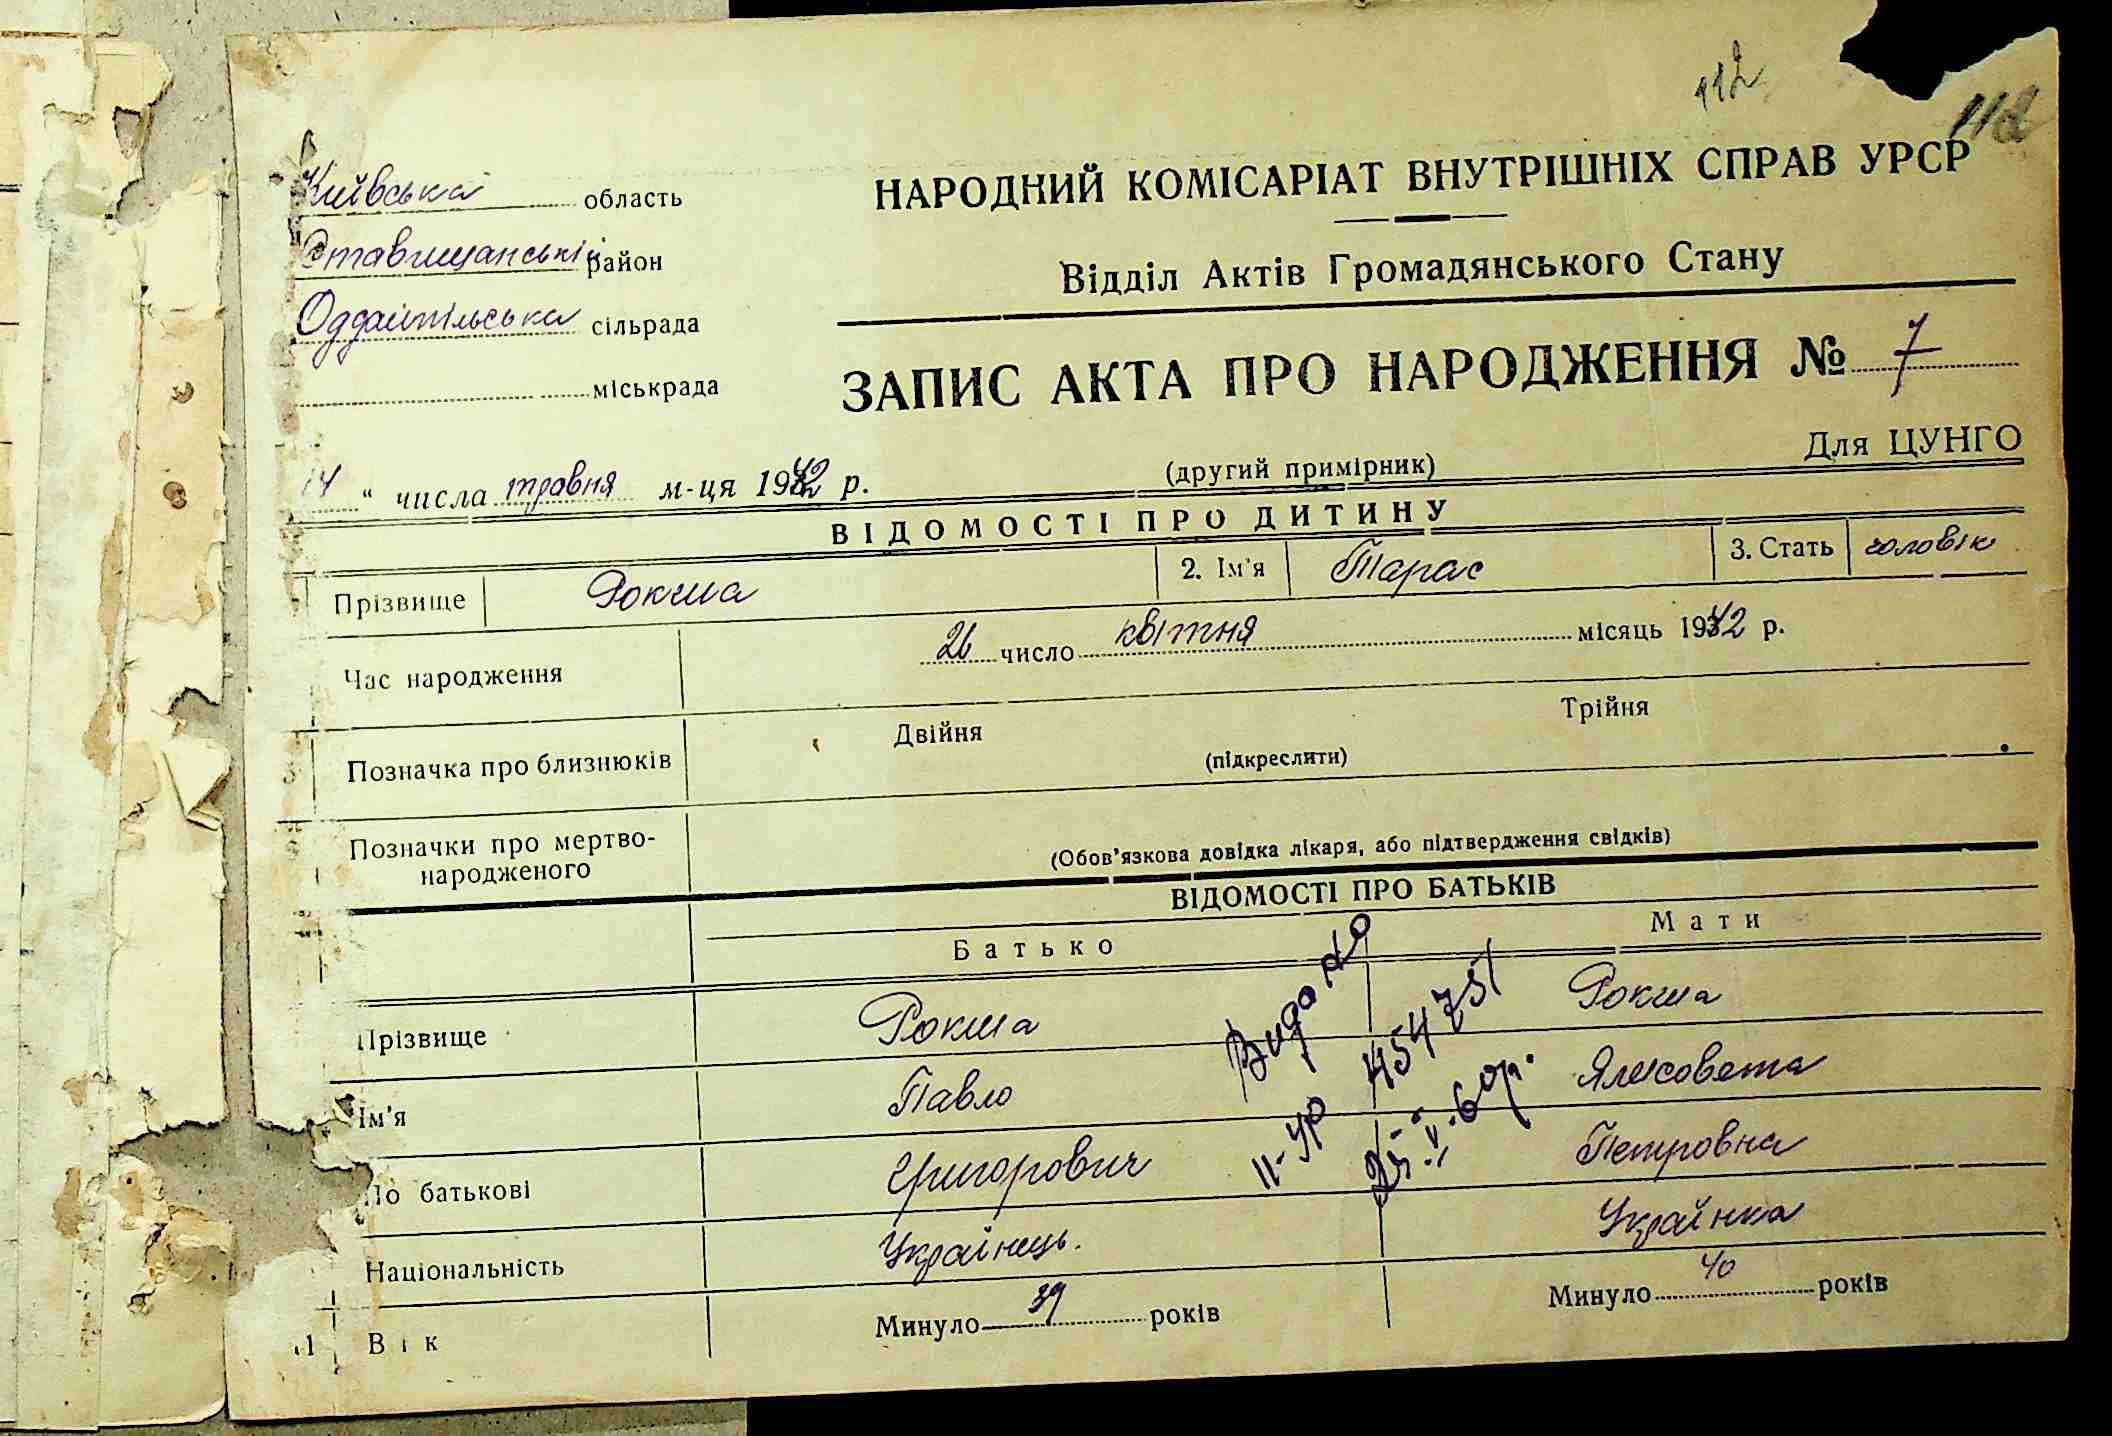 112
112
Київська область
Ставищанській район
Оддайпільська сільрада
міськрада
НАРОДНИЙ КОМІСАРІАТ ВНУТРІШНІХ СПРАВ УРСР
Відділ Актів Громадянського Стану
ЗАПИС АКТА ПРО НАРОДЖЕННЯ № 7
14 " числа травня м-ця 1942 р.
(другий примірник)
Для ЦУНГО
ВІДОМОСТІ ПРО ДИТИНУ
Прізвище Рокша 2. Ім'я Тарас 3. Стать чоловік
Час народження 26 число квітня місяць 1942 р.
Позначка про близнюків Двійня Трійня
(підкреслити)
Позначки про мертво-
народженого
(Обов'язкова довідка лікаря, або підтвердження свідків)
ВІДОМОСТІ ПРО БАТЬКІВ
Батько Мати
Прізвище Рокша Рокша
Ім'я Павло Ялисовета
По батькові Григорович Петровна
Національність Українець. Українка
Вік Минуло 39 років Минуло 40 років
Видано
II-УР 454751
25.V.60р.